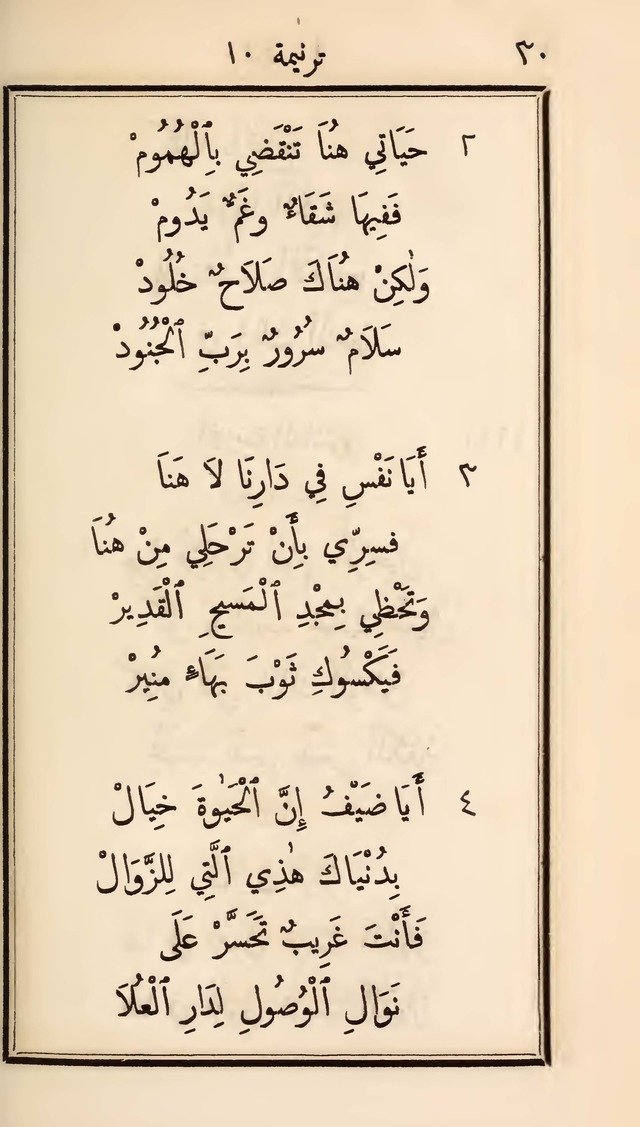 ٣٠ ترنيمة ١٠
٢ حَيَاتِي هُنَا تَنْقَضِي بِٱلْهُمُومْ
فَفِيهَا شَقَاءٌ وغَمٌّ يَدُومْ
وَلٰكِنْ هُنَاكَ صَلَاحٌ خُلُودْ
سَلَامٌ سُرُورٌ بِرَبِّ ٱلْجُنُودْ
٣ أَيَا نَفْسِ فِي دَارِنَا لَا هَنَا
فسِرِّي بِأَنْ تَرْحَلِي مِنْ هُنَا
وَتَحْظِي بِمَجْدِ ٱلْمَسِيحِ ٱلْقَدِيرْ
فَيَكْسُوكِ ثَوْبَ بَهَاءٍ مُنِيرْ
٤ أَيَا ضَيْفُ إِنَّ ٱلْحَيٰوةَ خِيَالْ
بِدُنْيَاكَ هٰذِي ٱلَّتِي لِلزَّوَالْ
فَأَنْتَ غَرِيبٌ تَحَسَّرْ عَلَى
نَوَالِ ٱلْوُصُولِ لِدَارِ ٱلْعُلَا